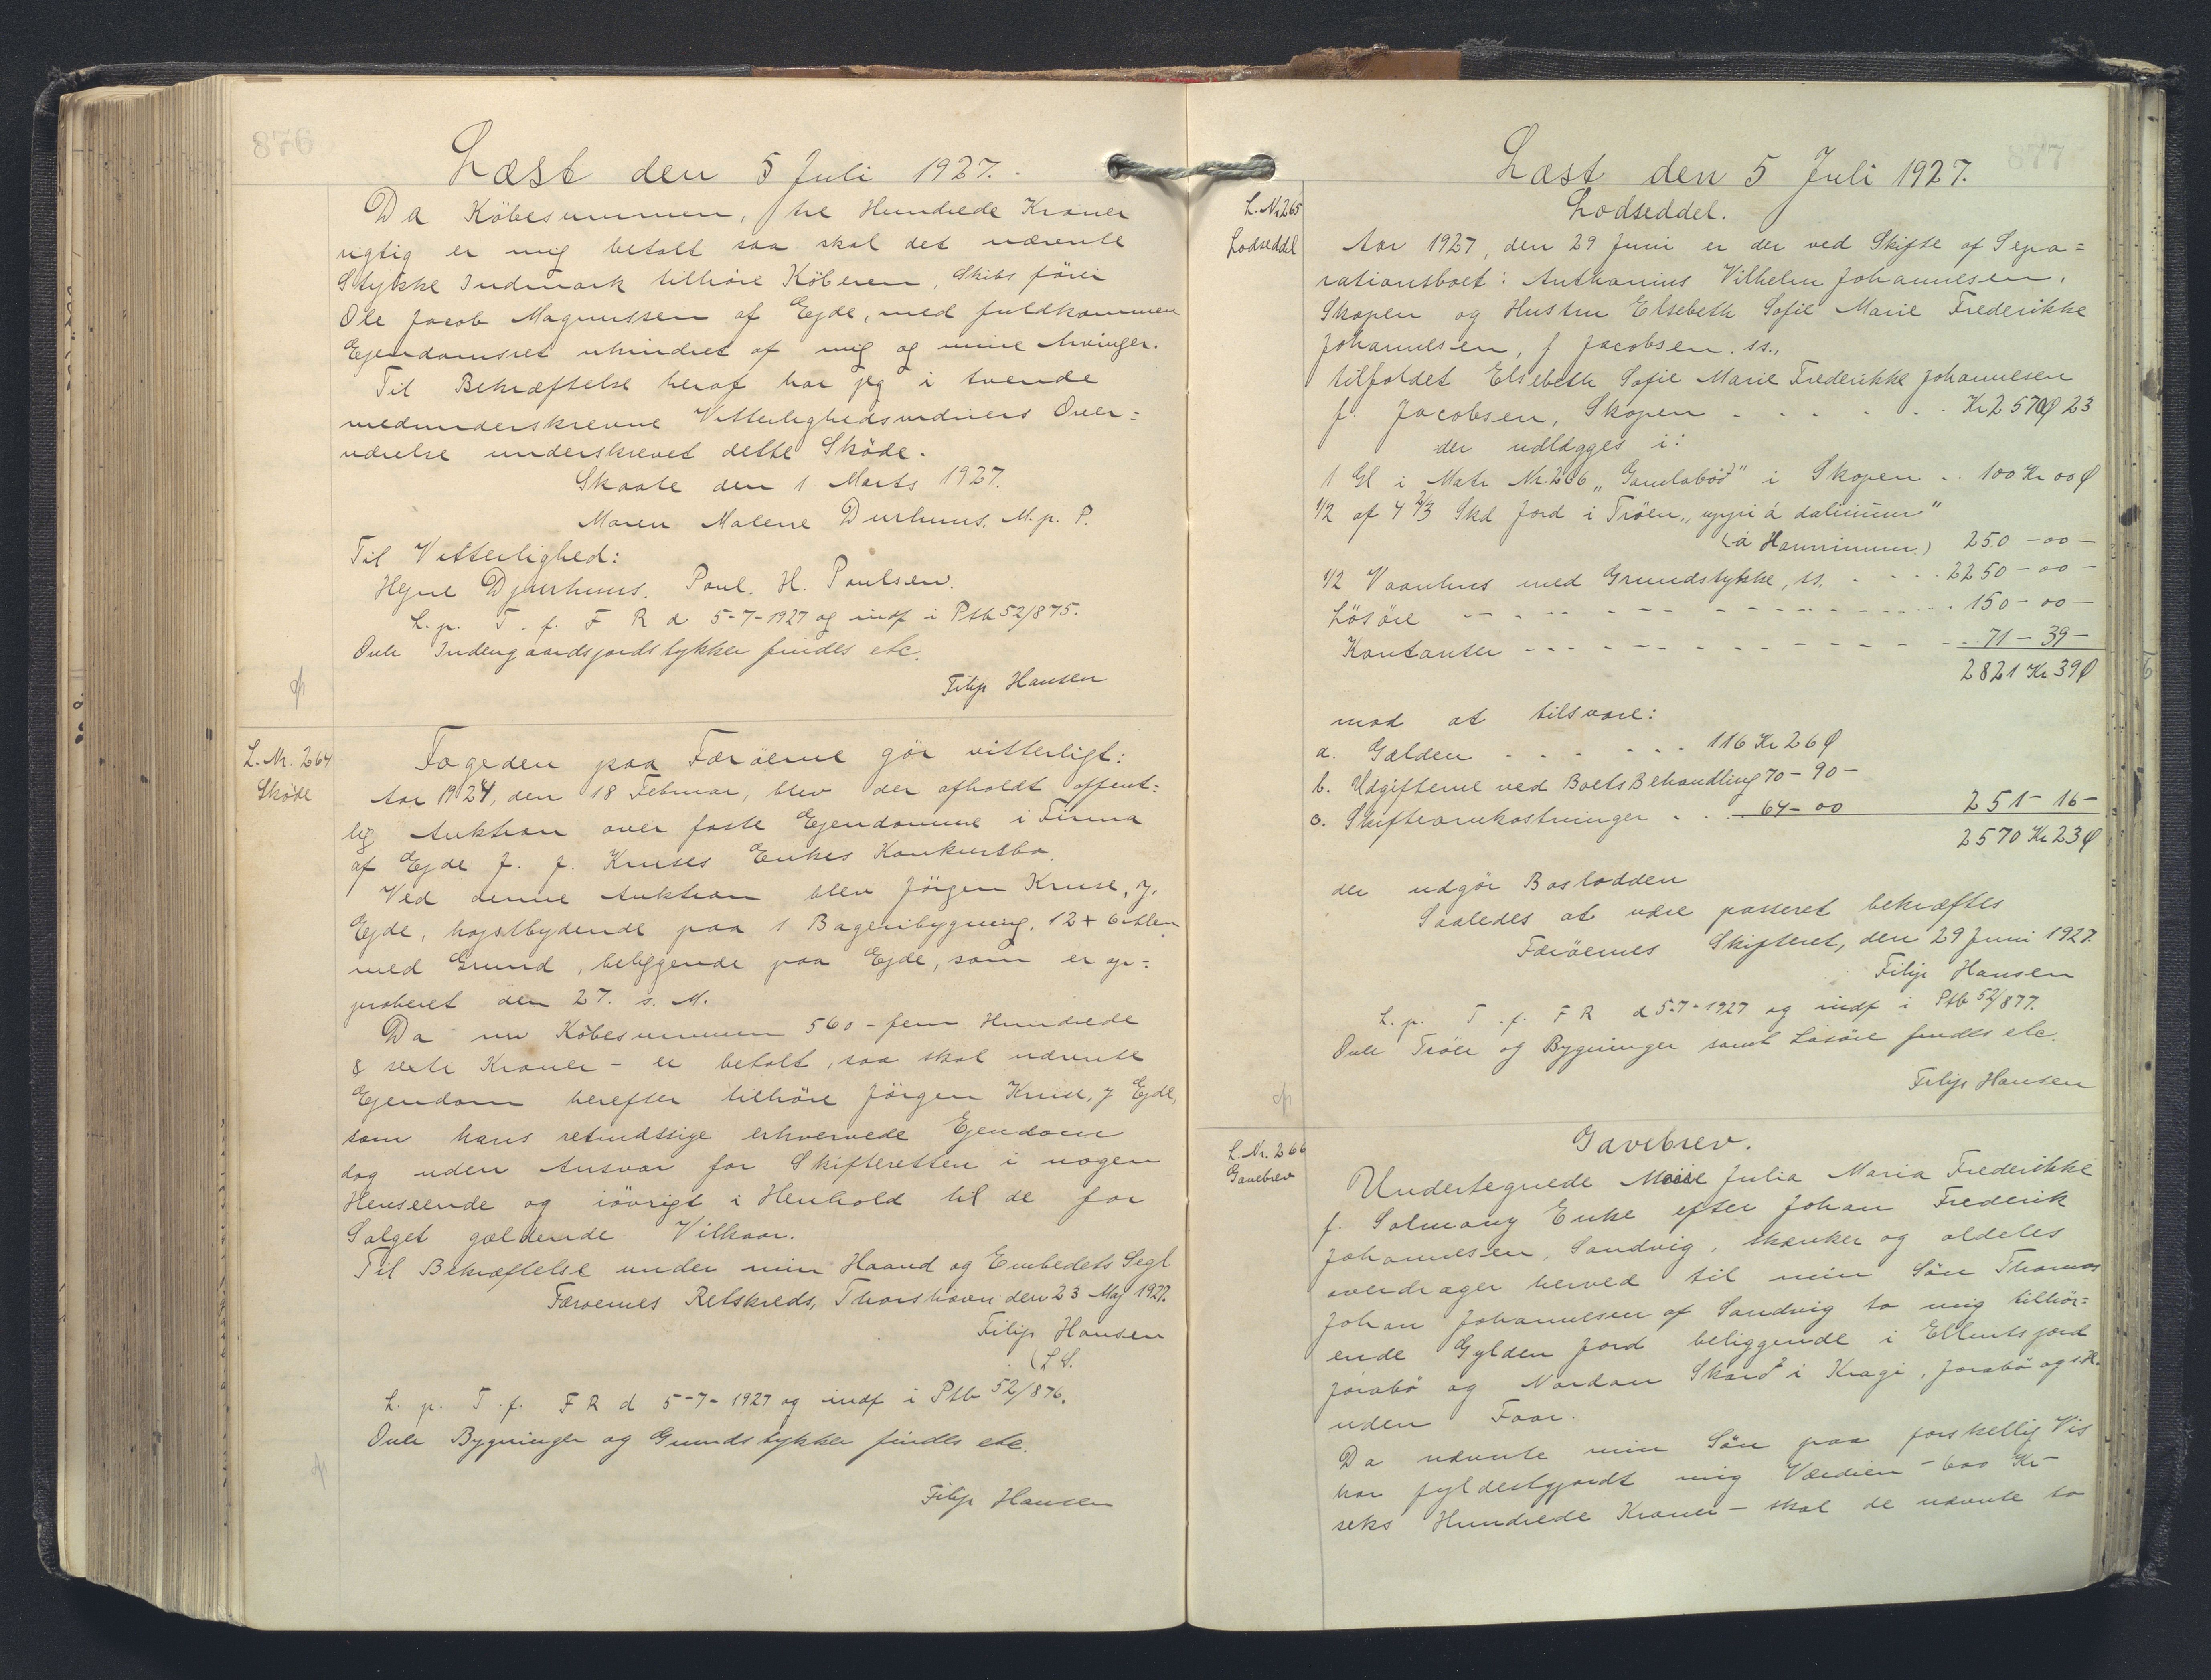 876
Læst den 5 Juli 1927.
Da Köbesummen, tre Hundrede Kroner
rigtig er mig betalt saa skal det nævnte
Stykke Indmark tilhöre Köberen, Skibsförer
Ole Jacob Magnussen af Ejde, med fuldkommen
Ejendomsret uhindret af mig og mine Arvinger.
Til Bekræftelse heraf har jeg i tvende
medunderskrevne Vitterlighedsvidners Over=
værelse underskrevet dette Sköde.
Skaale den 1 Marts 1927.
Maren Malene Durhuus. M. p. P.
Til Vitterlighed:
Hejne Djurhuus. Poul. H. Poulsen.
L. p. T. f. F R d 5-7-1927 og indf i Ptb 52/875.
Ovle Indengaardsjordstykker findes etc.
Filip Hansen
L. Nr. 264
Sköde
Fogeden paa Færöerne gör vitterligt:
Aar 1924, den 18 Februar, blev der afholdt offent=
lig Auktion over faste Ejendomme i Firma
af Ejde J. J. Kruses Enkes Konkursbo.
Ved denne Auktion blev Jörgen Kruse, y.
Ejde, højstbydende paa 1 Bageribygning, 12 + 6 Alen
med Grund, beliggende paa Ejde, som er ap=
proberet den 27. s. M.
Da nu Köbesummen 560 - fem Hundrede
& seksti Kroner - er betalt, saa skal nævnte
Ejendom herefter tilhöre Jörgen Kruse, y Ejde,
som hans retmæssige erhvervede Ejendom
dog uden Ansvar for Skifteretten i nogen
Henseende og iövrigt i Henhold til de for
Salget gældende Vilkaar.
Til Bekræftelse under min Haand og Embedets Segl
Færoernes Retskreds, Thorshavn den 23 Maj 1927.
Filip Hansen
(L S.
L. p. T. f. F R d 5-7-1927 og indf i Ptb 52/876.
Ovle Bygninger og Grundstykker findes etc.
Filip Hansen
877
Læst den 5 Juli 1927.
L. Nr 265
Lodseddel
Lodseddel.
Aar 1927, den 29 Juni er der ved Skifte af Sepa=
rationsboet: Anthonius Vilhelm Johannesen,
Skopen og Hustru Elsebeth Sofie Marie Frederikke
Johannesen, f Jacobsen. ss.,
tilfaldet Elsebeth Sofie Marie Frederikke Johannesen
f. Jacobsen, Skopen . . . . . . Kr 2570 Ø 23
der udlægges i:
1 Gl i Matr Nr. 266 „Gamlabøð" i Skopen . . 100 Kr 00 Ø
1/2 af 4 2/3 Skd Jord i Tröen „uppi á dalinum"
(á Hamrinum) 250 - 00 -
1/2 Vaanhus med Grundstykke, ss. . . . . 2250 - 00 -
Lösöre - - - - - - - - - - . 150 - 00 -
Kontanter - - - - - - - - - - . . 71 - 39 -
2821 Kr 39 Ø
mod at tilsvare:
a. Gælden . . . . . . 116 Kr 26 Ø
b. Udgifterne ved Boets Behandling 70 - 90 -
c. Skifteomkostninger . . . 64 - 00 251 - 16 -
2570 Kr 23 Ø
der udgör Boslodden
Saaledes at være passeret bekræftes
Færöernes Skifteret, den 29 Juni 1927.
Filip Hansen
L. p. T. f. F R d 5-7-1927 og indf i Ptb 52/877.
Ovle Tröer og Bygninger samt Lösöre findes etc.
Filip Hansen
L. Nr. 266
Gavebrev
Gavebrev.
Undertegnede Marie Julia Maria Frederikke
f. Solmany Enke efter Johan Frederik
Johannesen, Sandvig, skænker og aldeles
overdrager herved til min Sön Thomas
Johan Johannesen af Sandvig to mig tilhör=
ende Gylden Jord beliggende i Ellentsjord
Jorabö og Nordan Skard i Kragi, Jorabö og s. H.
uden Faar.
Da nævnte min Sön paa forskellig Vis
har fyldestgjordt mig Værdien - 600 Kr -
seks Hundrede Kroner - skal de nævnte to